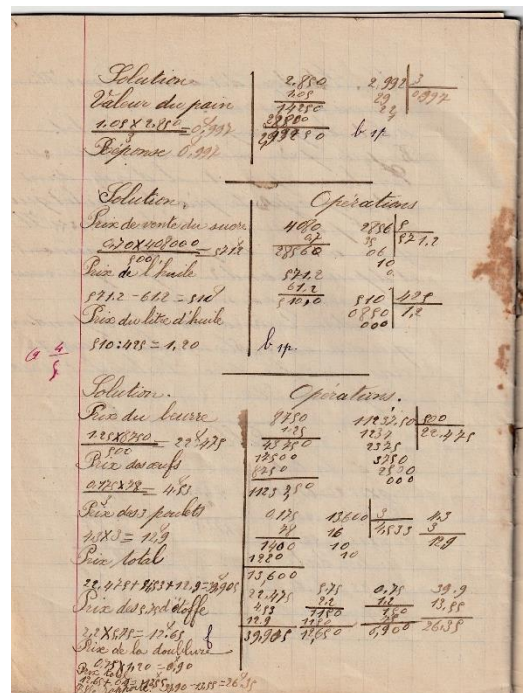 Solution
Valeur du pain
1.05 X 2.850 = 0,997
3
Réponse 0,997
2.850
1.05
14250
28500
2,99250
2.992 3
29 0.997
22
b sp
Solution.
Prix de vente du sucre
0.70 X 408000 = 571.2
500
Prix de l'huile
571.2 - 61.2 = 510
Prix du litre d'huile
510 : 425 = 1,20
Opérations
4080
0.7
2856 0
571.2
61.2
510,0
2856 5
35 571.2
06
10
0
510 425
0850 1,2
000
b sp.
4
5
Solution.
Prix du beurre
1.25 X 8750 = 22.475
500
Prix des œufs
0.175 X 78 = 4.53
3
Prix des 3 poulets
4.3 X 3 = 12.9
Prix total
22.475 + 4.53 + 12.9 = 39.905
Prix des 5.75 d'étoffe
2,2 X 5.75 = 12.65
Prix de la doublure
0.75 X 1.20 = 0.90
Prix total
Opérations.
8750
1.25
43750
17500
8750
11237.50 500
1237 22.475
2375
3750
2500
000
0.175
78
1400
13,600
13600 3
16 4533
10
10
4.3
3
12.9
22.475
4.53
12.9
39.905
5.75
2.2
1150
1150
12,650
0.75
1.2
150
75
0,900
39.9
13.55
26.35
b